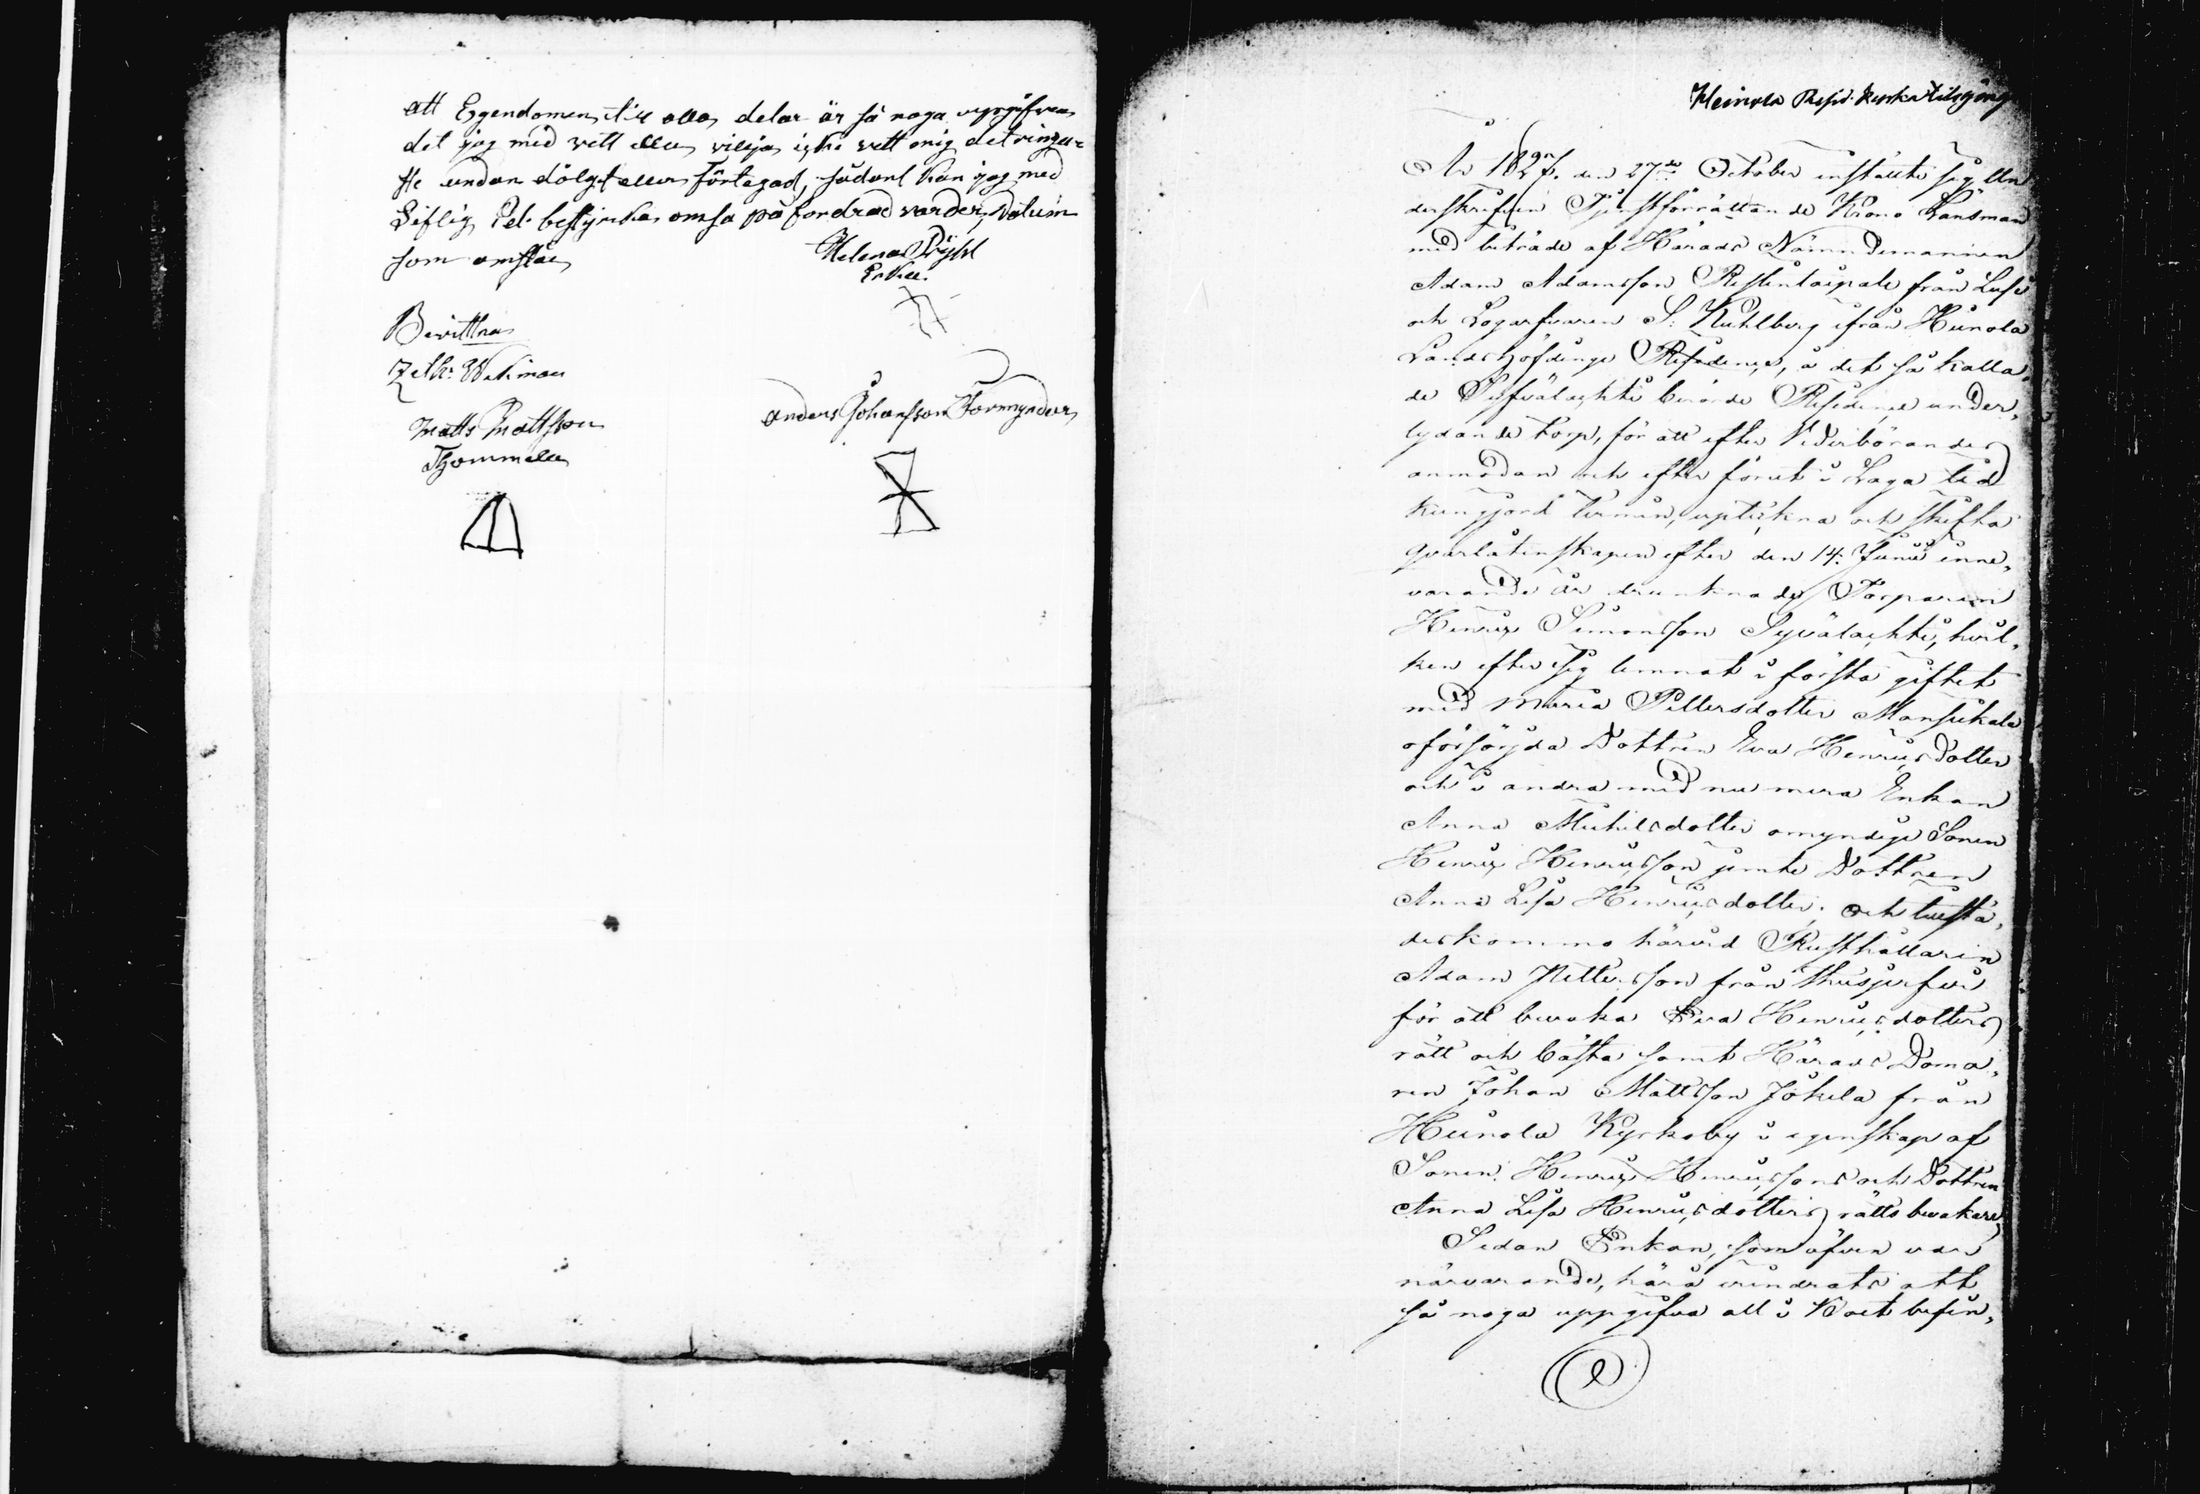 att Egendomen till alla delar är så noga uppgifven
det jag med vett eller vilja icke vett mig det ringa-
ste undan dölgt eller förtegad, sådant kan jag med
Liflig Ed. bestyrcka om så på fordrad varder, Datum
som ofvan
Helena
Enka.
Bevittna
Zeth: Wekman
Matts Mattsson
Thommola
Anders Johansson Förmyndare
Heinola Resid.
År 1827. den 27de October instälte sig Un
derskrifven Tjenstförrättande Krono Länsman
med biträde af Härads Nämndemannen
Adam Adamsson Restintaipale från Lusi
och Logarfvaren S: Kuhlberg ifrån Heinola
Landshöfdinge Residence, å det så kalla,
de Syfvälachti berörde Residence under,
lydande torp, för att efter Vederbörandes
anmodan och efter förut i Laga tid
kungjord termin, upteckna och skifta
qvarlåtenskapen efter den 14: Junii inne,
varande år drunknade Torparen
Henric Simonsson Syvälachti, hvil,
ken efter sig lemnat i första giftet
med Maria Pettersdotter Mansikala
oförsörjda Dottren Eva Henricsdotter
och i andra med nu mera Enkan
Anna Michelsdotter omyndige Sonen
Henric Henricsson jemte Dottren
Anna Lisa Henricsdotter; och tillstä,
deskommo härvid Rusthållaren
Adam Pettersson från
för att bevaka Eva Henricsdotters
rätt och bästa samt Härads Doma,
ren Johan Mattsson Jokela från
Heinola Kyrkoby i egenskap af
Sonen Henric Henricssons och Dottren
Anna Lisa Henricsdotters rätts bevakare,
Sedan Enkan, som äfven var
närvarande, härå erindrats att
så noga uppgifva allt i Boet befin,